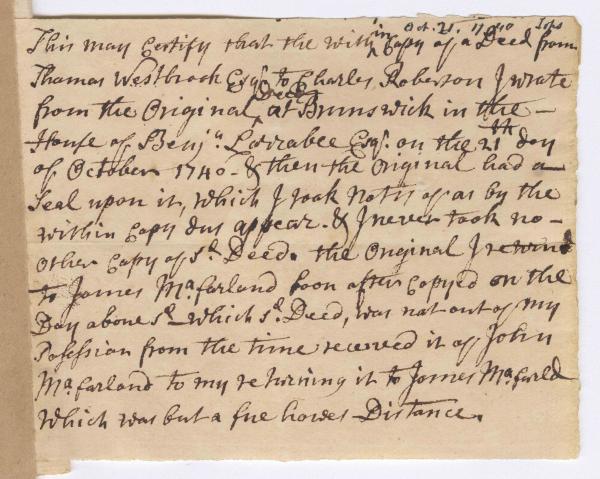 Oct. 21. 1740
This may Certify that the with^in Copy of a Deed from
Thomas Westbrook Esqr. to Charles Roberson I wrote
from the Original ^Deed at Brunswick in the -
House of Benja. Larrabee Esqr. on the 21th day
of October 1740 - & then the Original had a
Seal upon it, which I took Notis of as by the
within Copy dus appear. & I never took no -
Other Copy of sd. Deed. the Original I
to James Macfarland Soon after Copyed on the
Day above sd. which sd. Deed, was not out of my
Posession from the time received it of John
Macfarland to my returning it to James Macfarld
which was but a fue howrs Distance.